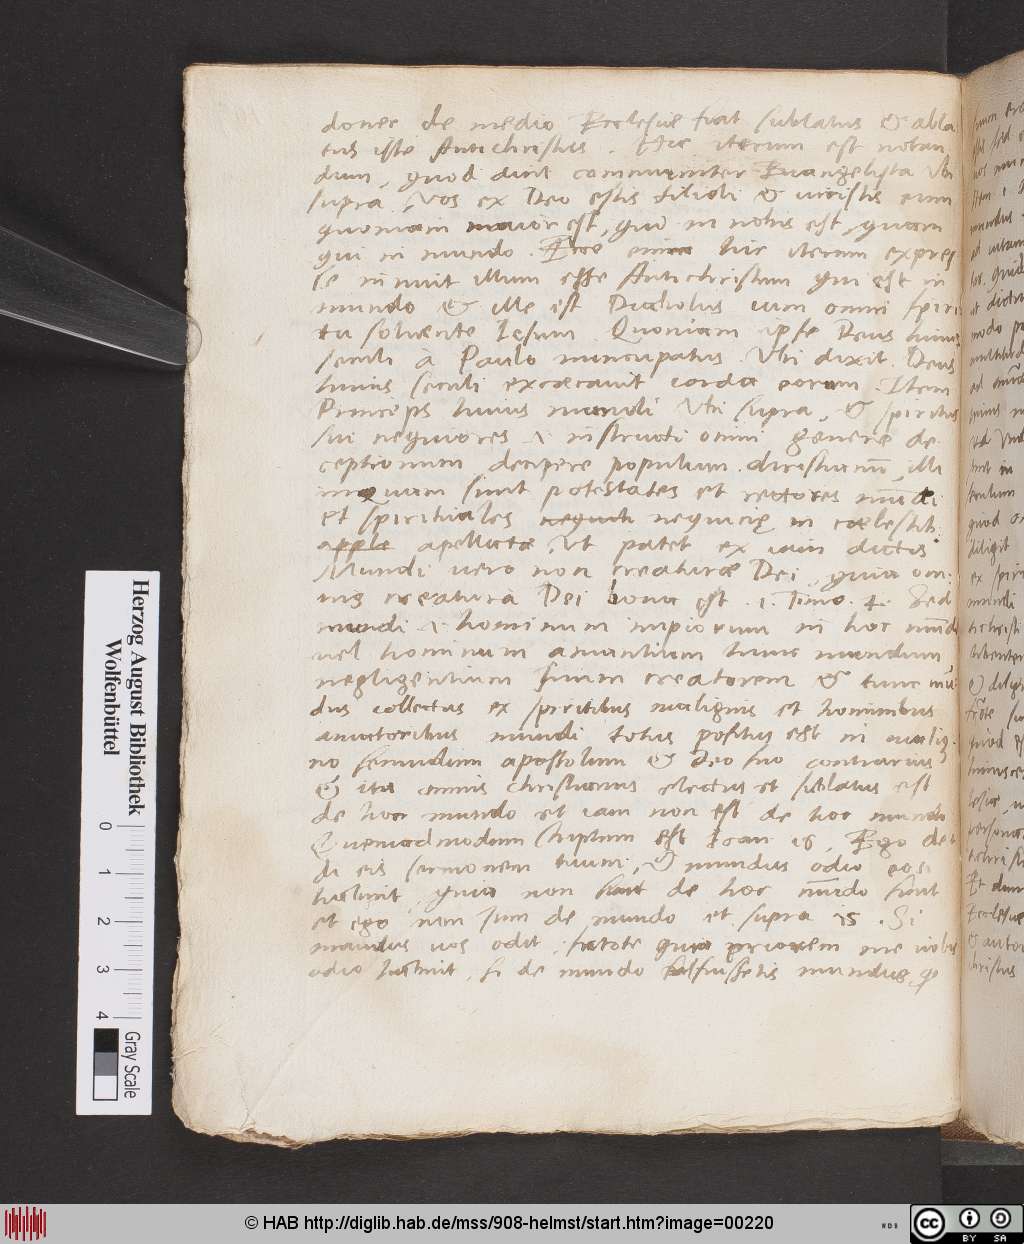 donec de medio Ecclesiæ fiat sublatus & abla
tus iste Antichristus. Hic iterum est notan
dum, quod dicit communiter Evangelista Vbi
supra, Vos ex Deo estis filioli & vicistis eum
quoniam maior est, qui in vobis est, quam
qui in mundo. Ecce enim hic iterum expres
se innuit illum esse Antichristum qui est in
mundo & ille est Diabolus cum omni spiri
tu solvente Iesum. Quoniam ipse Deus huius
seculi a Paulo nuncupatus. Vbi dixit. Deus
huius seculi excæcavit corda eorum. Item
Princeps huius mundi Vbi supra, & spiritus
sui nequiores instructi omni genere de
ceptionum decipere populum christianū, illi
inquam sunt potestates et rectores mūdi
et spirituales nequicię in cælestib:
appla apellatæ, Vt patet ex iam dictis.
Mundi vero non creaturæ Dei, quia om:
nis creatura Dei bona est. 1. Timo. 4. Sed
mundi hominum impiorum in hoc mūdo
vel hominum amantium hunc mundum,
negligentium suum creatorem & tunc mū
dus collectus ex spiritibus malignis et hominibus
amatoribus mundi totus positus est in malig
no secundum apostolum & Deo suo contrarius
& ita omnis christianus electus et sublatus est
de hoc mundo et iam non est de hoc mundo
Quemadmodum scriptum est Ioan 15. Ego de
di eis sermonem tuum, & mundus odio eos
habuit, quia non sunt de hoc mūdo sicut
et ego non sum de mundo et supra 15. Si
mundus vos odit, scitote quia priorem me vobis
odio habuit, si de mundo fuissetis mundus, qd
Herzog August Bibliothek
Wolfenbüttel
0 1 2 3 4
Gray Scale
© HAB http://diglib.hab.de/mss/908-helmst/start.htm?image=00220
WDB
cc BY SA